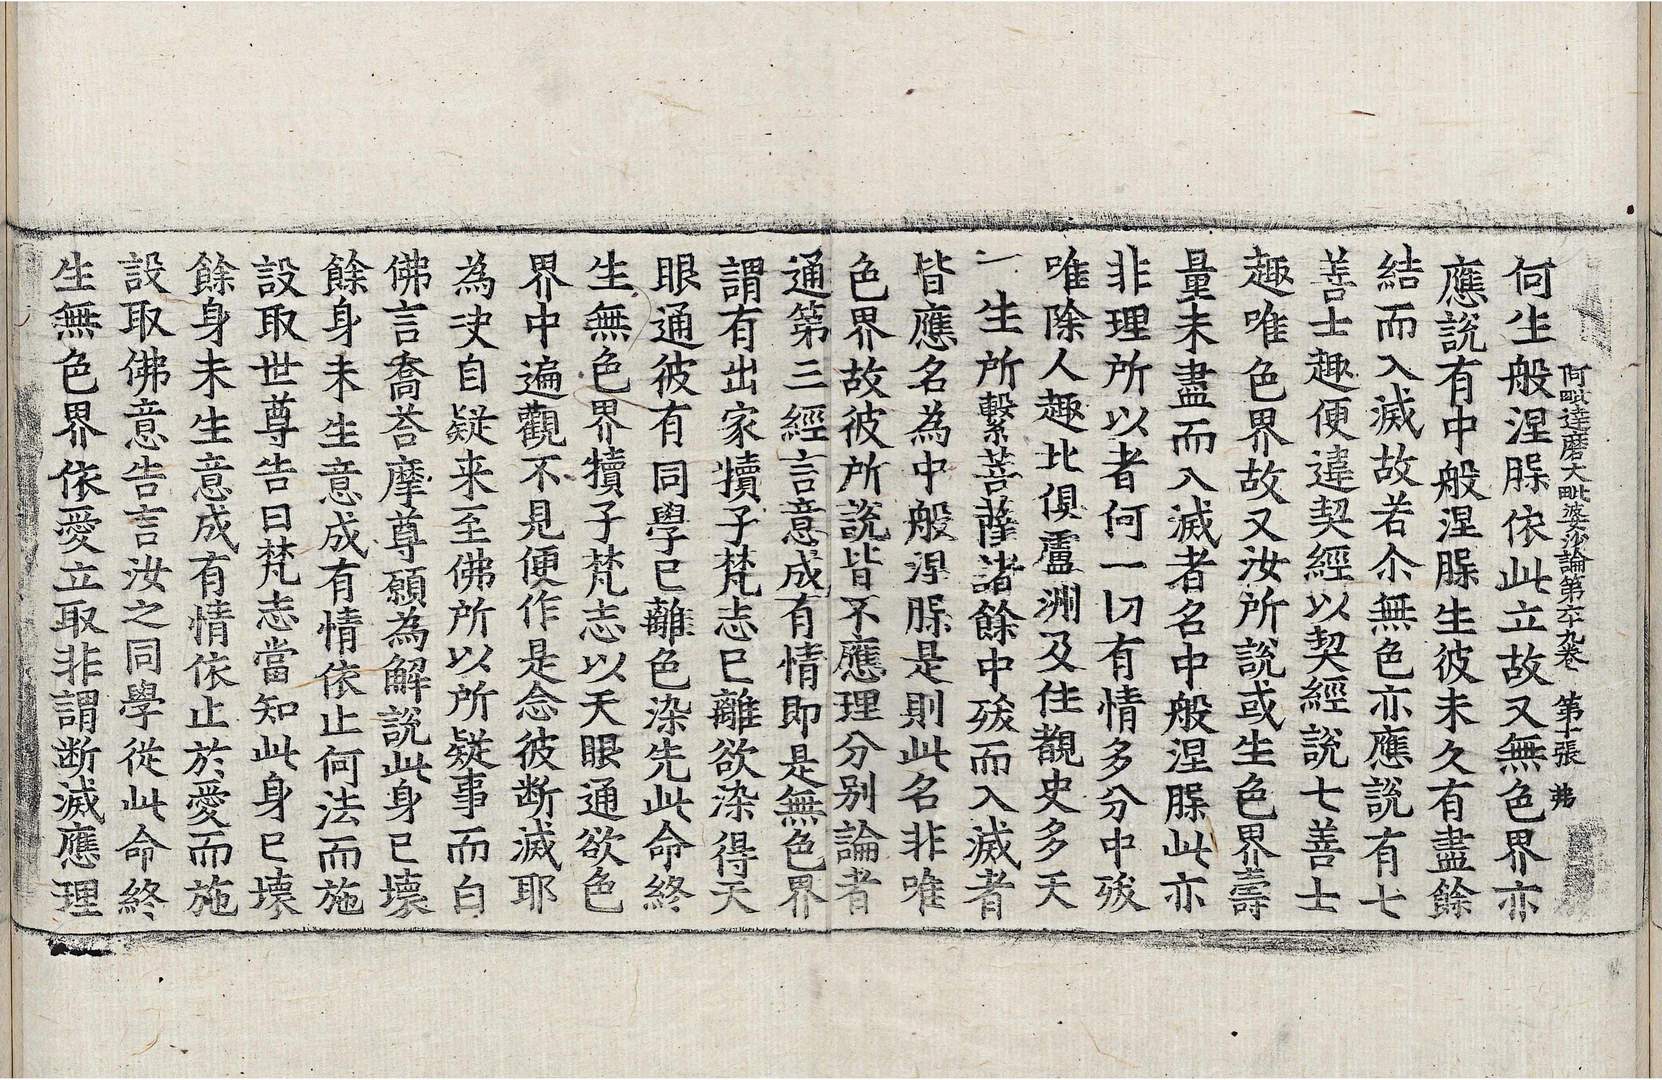 阿毗達磨大毗婆沙論第六十九卷　第十張　弗
何生般涅槃依此立故又無色界亦
應說有中般涅槃生彼未久有盡餘
結而入滅故若尒無色亦應說有七
善士趣便違契經以契經說七善士
趣唯色界故又汝所說或生色界壽
量未盡而入滅者名中般涅槃此亦
非理所以者何一切有情多分中殀
唯除人趣北俱盧洲及住覩史多天
一生所繫菩薩諸餘中殀而入滅者
皆應名為中般涅槃是則此名非唯
色界故彼所說皆不應理分別論者
通第三經言意成有情即是無色界
謂有出家犢子梵志已離欲染得天
眼通彼有同學已離色染先此命終
生無色界犢子梵志以天眼通欲色
界中遍觀不見便作是念彼斷滅耶
為決自疑来至佛所以所疑事而白
佛言喬荅摩尊願為解說此身已壞
餘身未生意成有情依止何法而施
設取世尊告曰梵志當知此身已壞
餘身未生意成有情依止於愛而施
設取佛意告言汝之同學從此命終
生無色界依愛立取非謂断滅應理